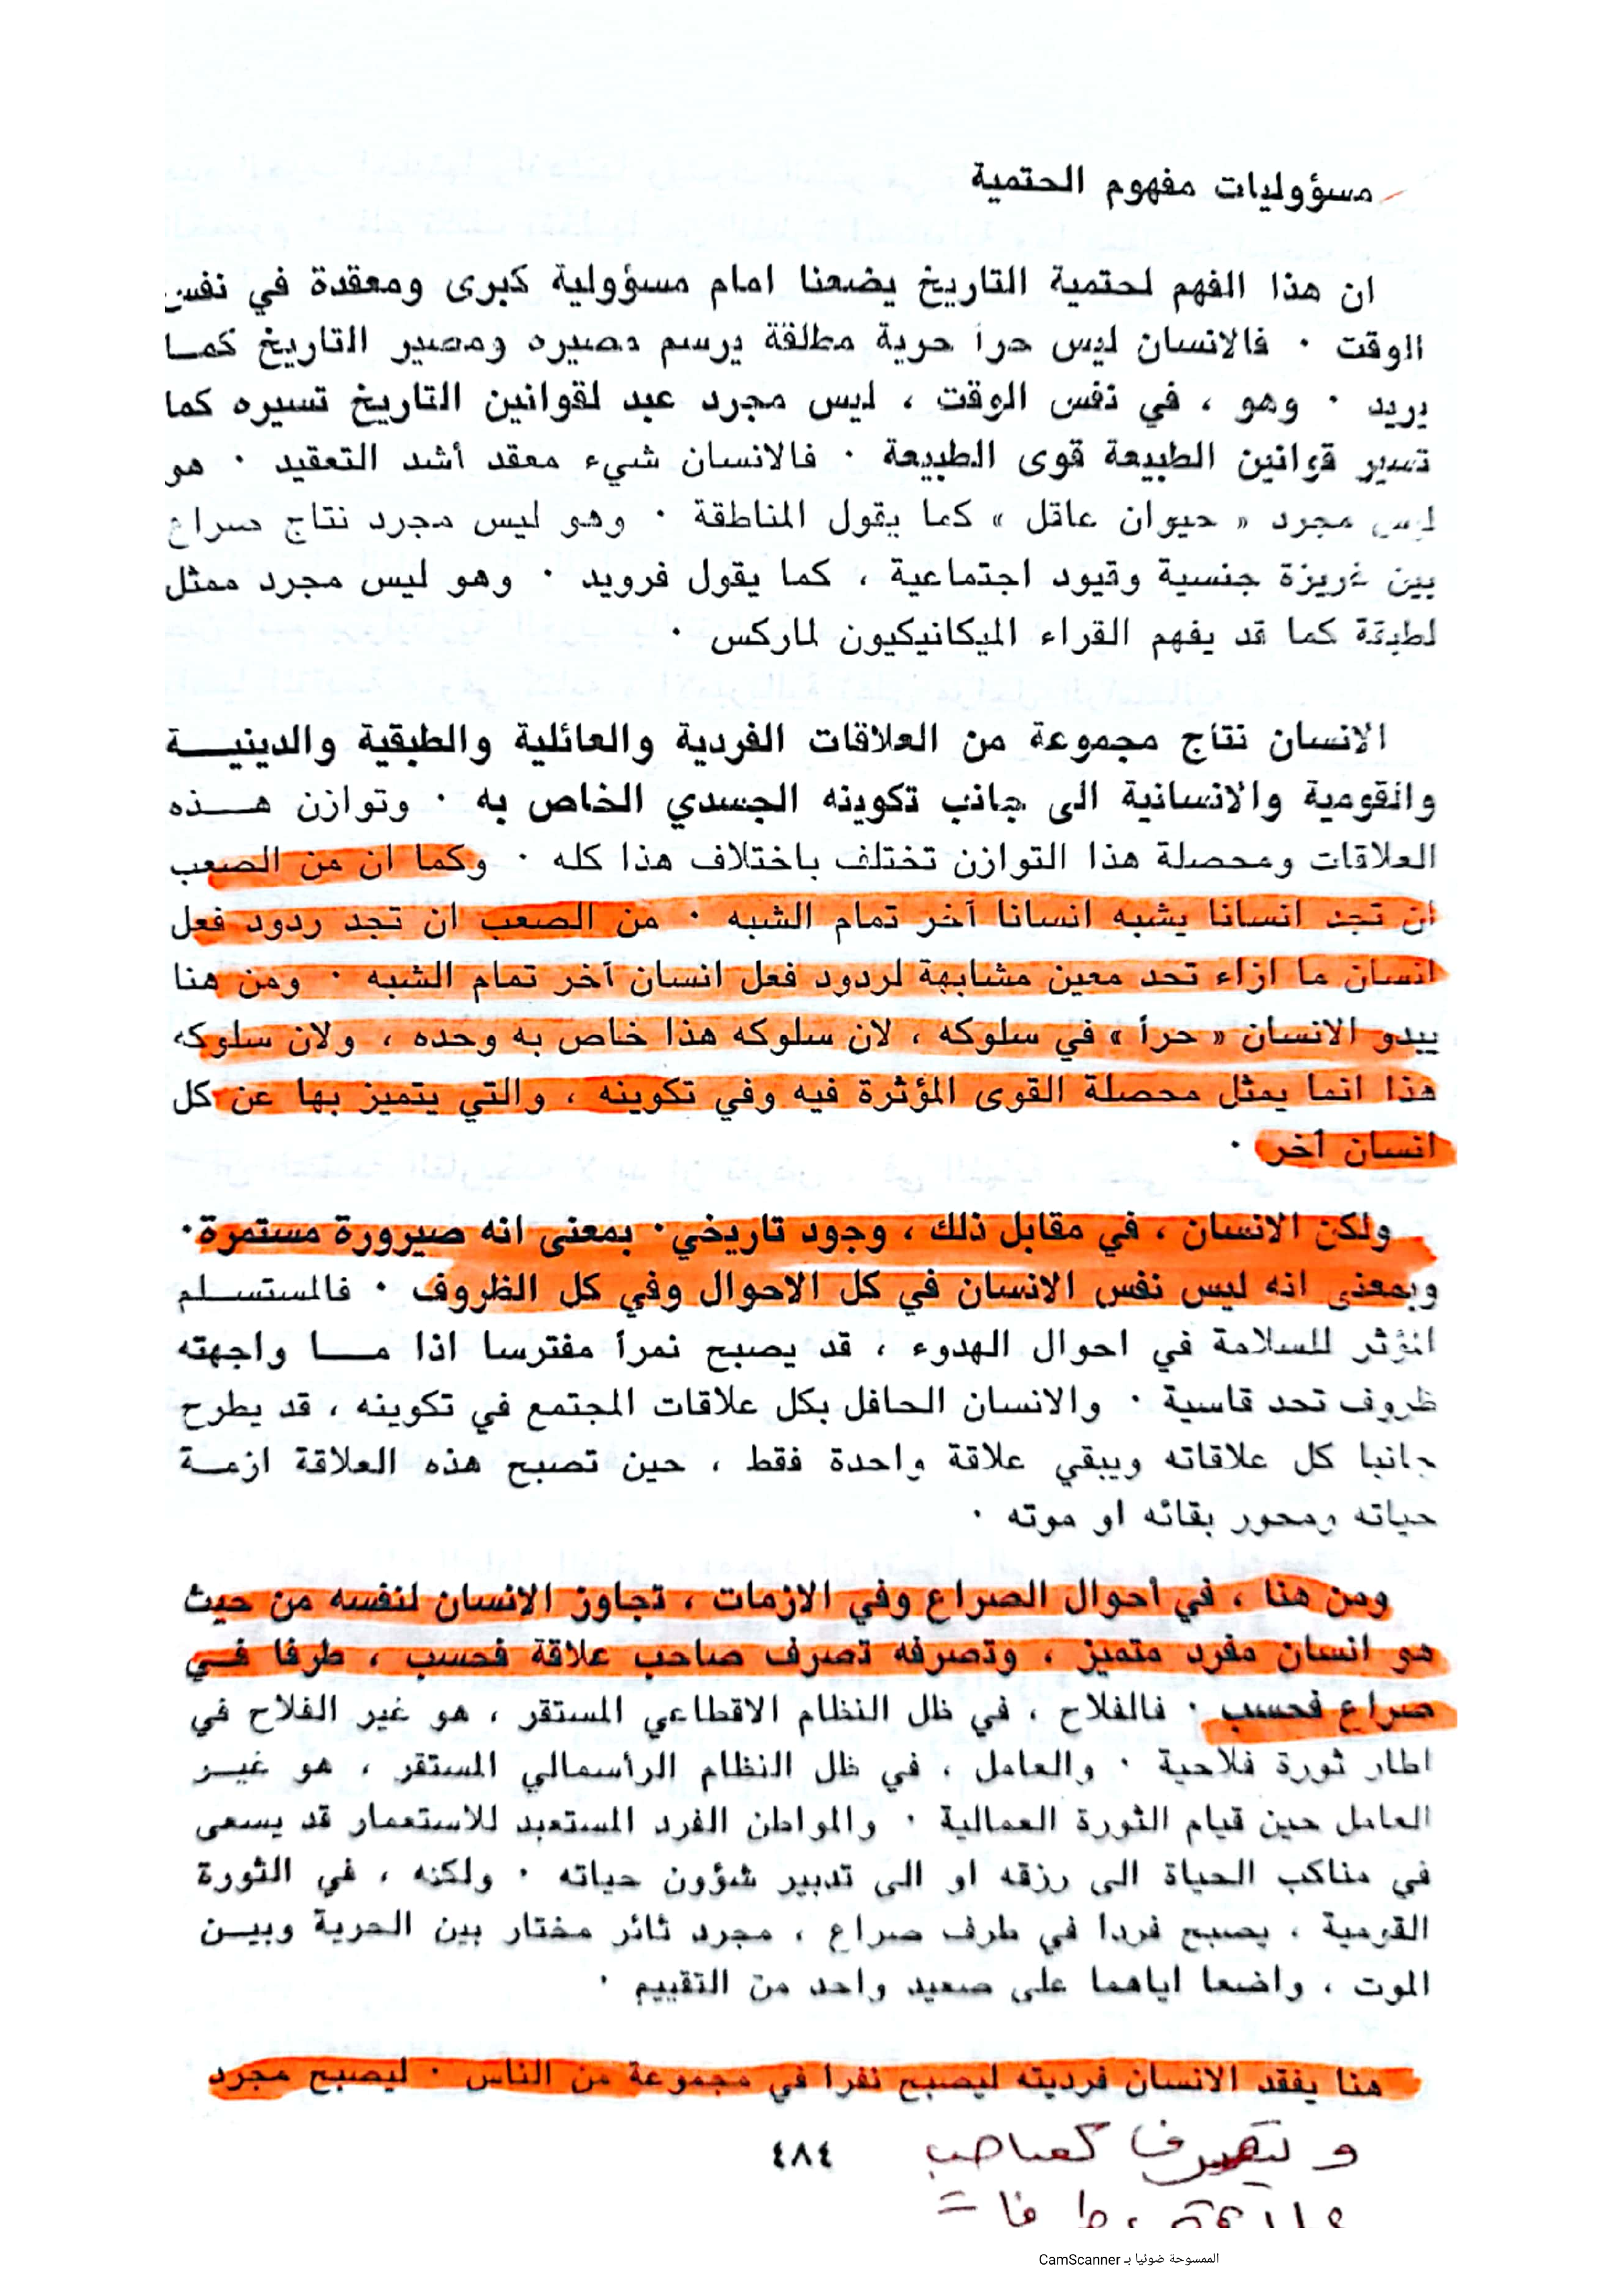 مسؤوليات مفهوم الحتمية
ان هذا الفهم لحتمية التاريخ يضعنا امام مسؤولية كبرى ومعقدة في نفس
الوقت ٠ فالانسان ليس حراً حرية مطلقة يرسم مصيره ومصير التاريخ كما
يريد ٠ وهو ، في نفس الوقت ، ليس مجرد عبد لقوانين التاريخ تسيره كما
تسير قوانين الطبيعة قوى الطبيعة ٠ فالانسان شيء معقد أشد التعقيد ٠ هو
ليس مجرد « حيوان عاقل » كما يقول المناطقة ٠ وهو ليس مجرد نتاج صراع
بين غريزة جنسية وقيود اجتماعية ، كما يقول فرويد ٠ وهو ليس مجرد ممثل
لطبقة كما قد يفهم القراء الميكانيكيون لماركس ٠
الانسان نتاج مجموعة من العلاقات الفردية والعائلية والطبقية والدينية
والقومية والانسانية الى جانب تكوينه الجسدي الخاص به ٠ وتوازن هذه
العلاقات ومحصلة هذا التوازن تختلف باختلاف هذا كله ٠ وكما ان من الصعب
ان تجد انسانا يشبه انسانا آخر تمام الشبه ٠ من الصعب ان تجد ردود فعل
انسان ما ازاء تحد معين مشابهة لردود فعل انسان آخر تمام الشبه ٠ ومن هنا
يبدو الانسان « حراً » في سلوكه ، لان سلوكه هذا خاص به وحده ، ولان سلوكه
هذا انما يمثل محصلة القوى المؤثرة فيه وفي تكوينه ، والتي يتميز بها عن كل
انسان آخر ٠
ولكن الانسان ، في مقابل ذلك ، وجود تاريخي ٠ بمعنى انه صيرورة مستمرة ٠
وبمعنى انه ليس نفس الانسان في كل الاحوال وفي كل الظروف ٠ فالمستسلم
المؤثر للسلامة في احوال الهدوء ، قد يصبح نمراً مفترسا اذا ما واجهته
ظروف تحد قاسية ٠ والانسان الحافل بكل علاقات المجتمع في تكوينه ، قد يطرح
جانبا كل علاقاته ويبقي علاقة واحدة فقط ، حين تصبح هذه العلاقة ازمة
حياته ومحور بقائه او موته ٠
ومن هنا ، في أحوال الصراع وفي الازمات ، تجاوز الانسان لنفسه من حيث
هو انسان مفرد متميز ، وتصرفه تصرف صاحب علاقة فحسب ، طرفا في
صراع فحسب ٠ فالفلاح ، في ظل النظام الاقطاعي المستقر ، هو غير الفلاح في
اطار ثورة فلاحية ٠ والعامل ، في ظل النظام الرأسمالي المستقر ، هو غير
العامل حين قيام الثورة العمالية ٠ والمواطن الفرد المستعبد للاستعمار قد يسعى
في مناكب الحياة الى رزقه او الى تدبير شؤون حياته ٠ ولكنه ، في الثورة
القومية ، يصبح فردا في طرف صراع ، مجرد ثائر مختار بين الحرية وبين
الموت ، واضعا اياهما على صعيد واحد من التقييم ٠
هنا يفقد الانسان فرديته ليصبح نفرا في مجموعة من الناس ٠ ليصبح مجرد
و يتصرف كصاحب
٤٨٤
الممسوحة ضوئيا بـ CamScanner